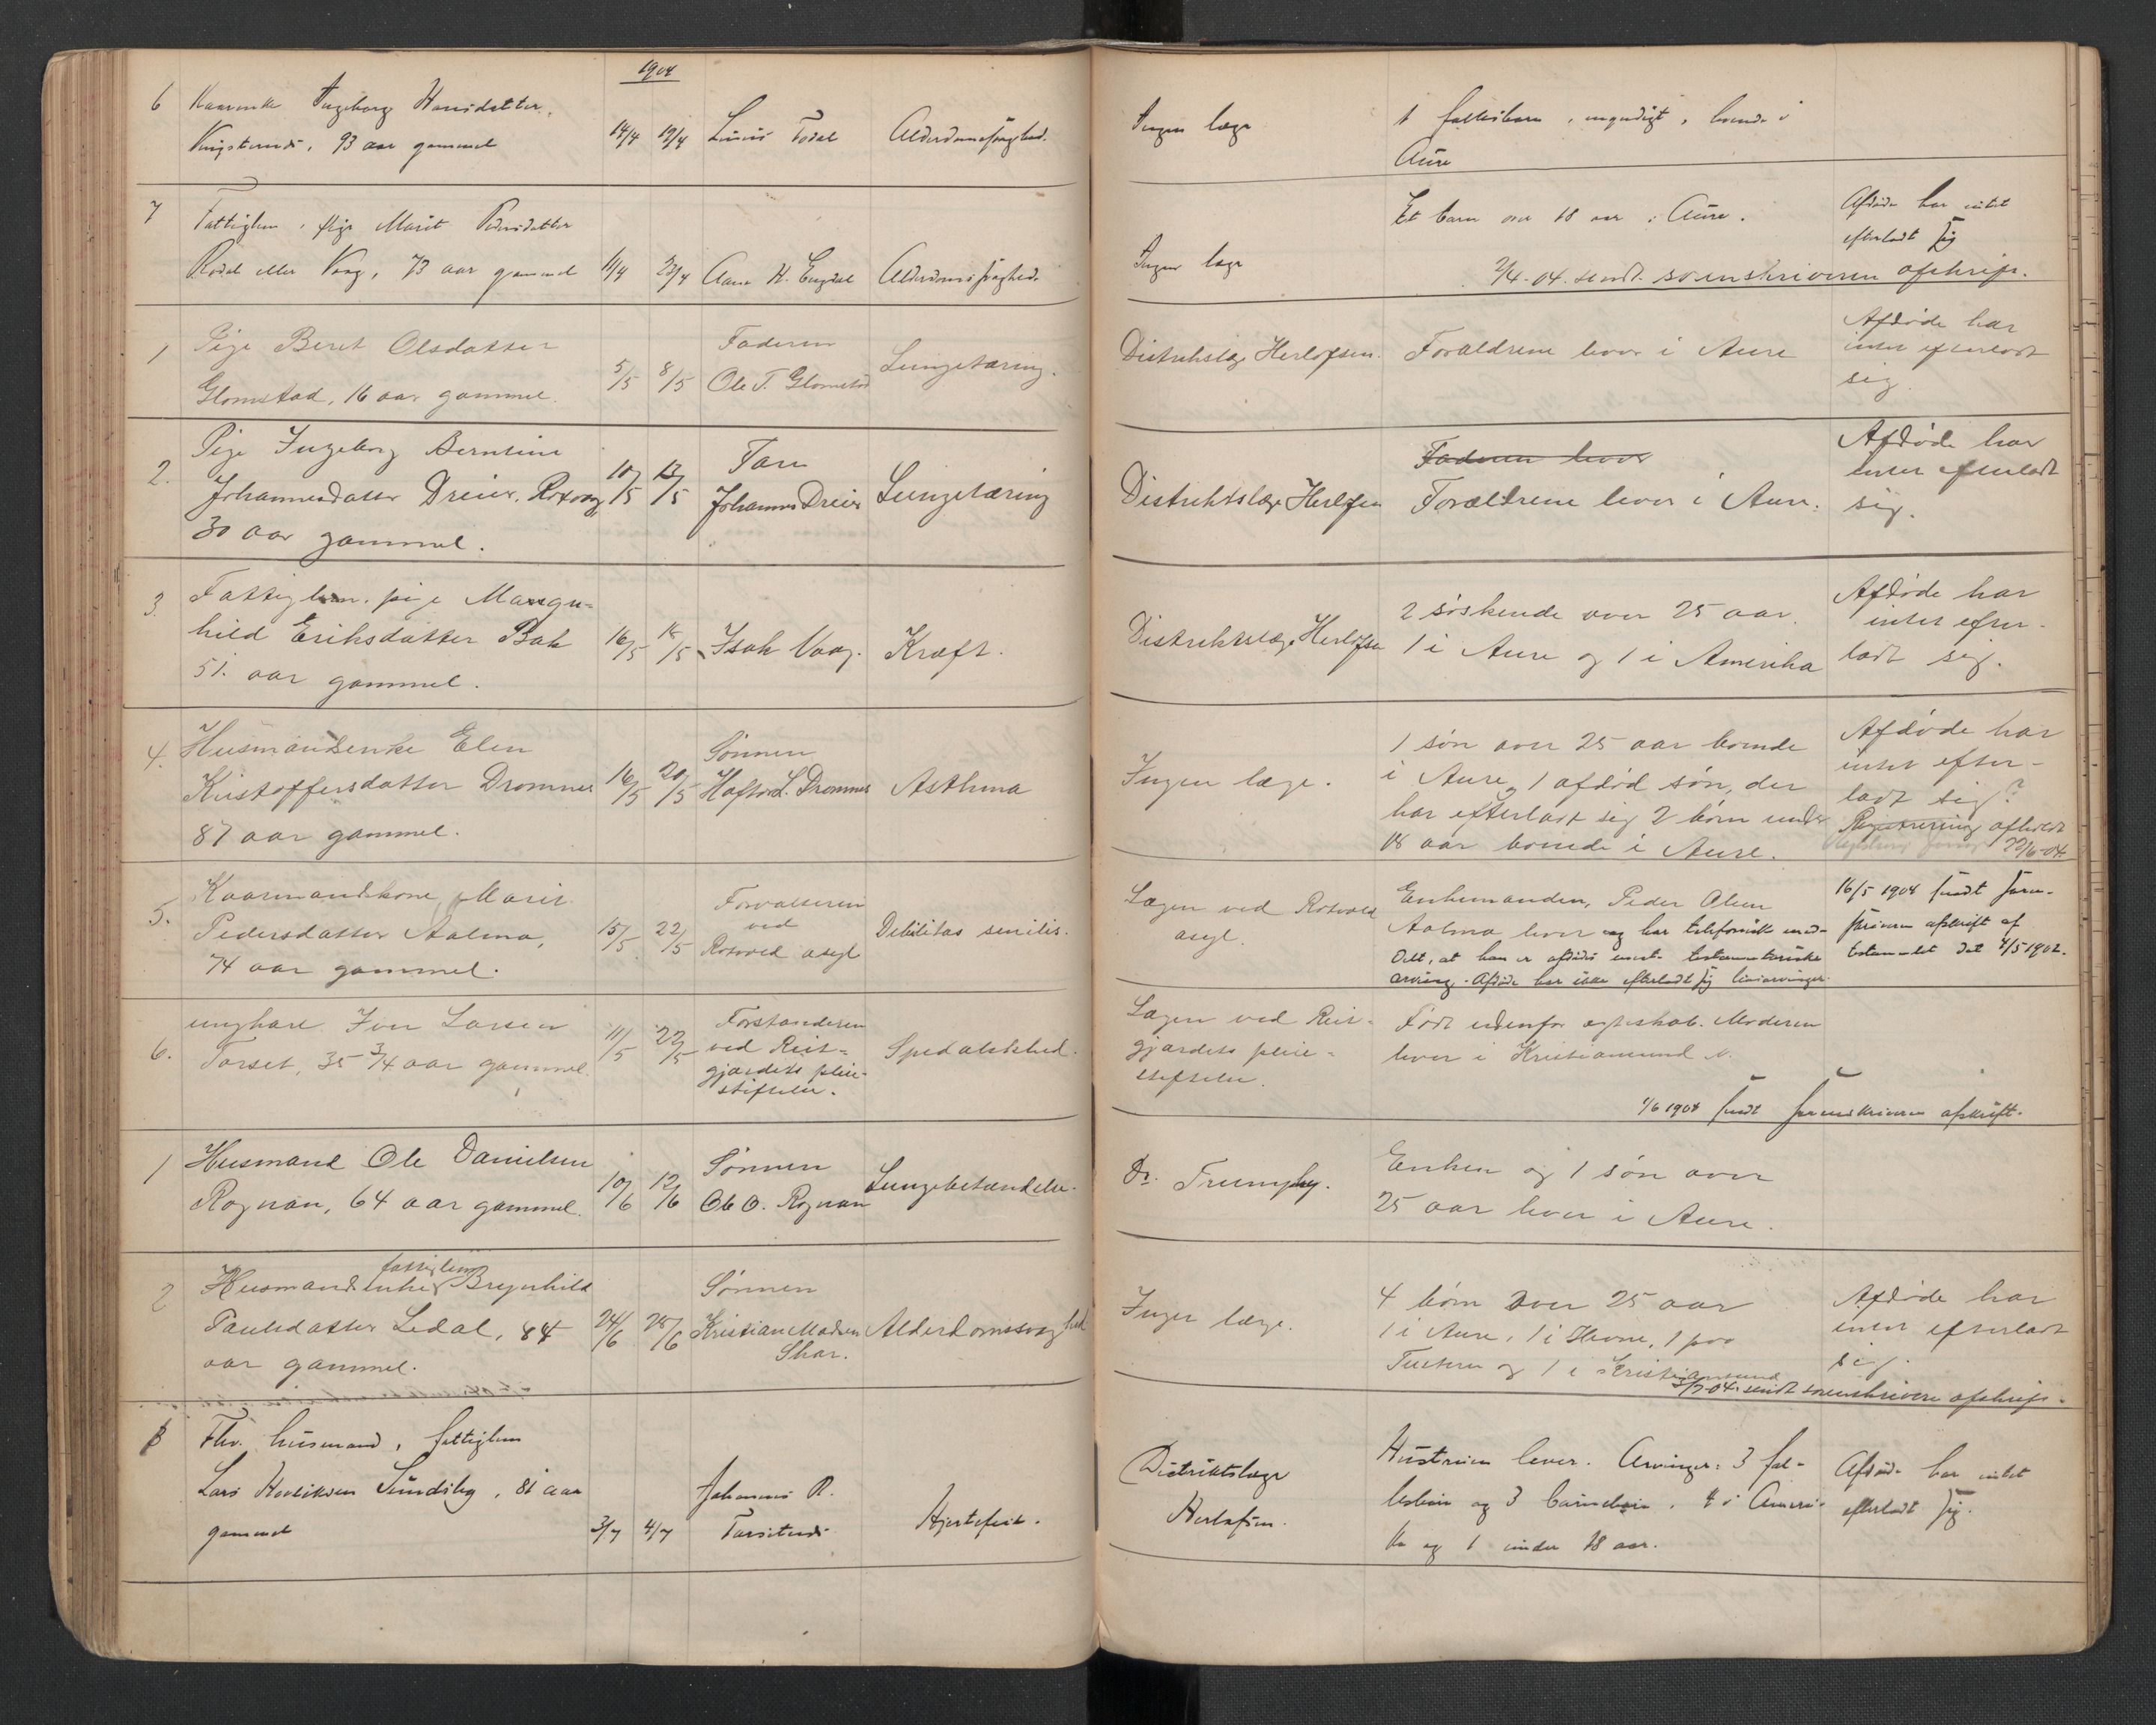 1904
6 Kaarenke Ingeborg Hansdatter,
93 aar gammel 14/4 19/4 Todal Alderdomssvaghed.
Ingen læge
1 fællesbarn, myndigt, boende i
Aure
7 Fattiglem, pige Marit Pedersdatter
Rodal eller Vaag, 73 aar gammel 11/4 23/4 Alderdomssvaghed.
Ingen læge
Et barn over 18 aar i Aure.
Afdøde har intet
efterladt sig
2/4-04. sendt sorenskriveren afskrift.
1 Pige Beret Olsdatter
Glomstad, 16 aar gammel.
5/5 8/5
Faderen
Ole T. Glomstad
Lungetæring.
Distriktslæge Herlofsen.
Forældrene lever i Aure
Afdøde har
intet efterladt
sig.
2. Pige Ingeborg Berntine
Johannesdatter Dreier. Rotvaag,
30 aar gammel.
10/5 13/5
Faren
Johannes Dreier
Lungetæring
Distriktslæge Herlofsen
Faderen lever
Forældrene lever i Aure.
Afdøde har
intet efterladt
sig.
3. Fattiglem. pige Mangn-
hild Eriksdatter Bak
51. aar gammel.
16/5 18/5
Isak Vaag.
Kræft.
Distriktslæge Herlofsen
2 søskende over 25 aar.
1 i Aure og 1 i Amerika
Afdøde har
intet efter-
ladt sig.
4. Husmandsenke Elen
Kristoffersdatter Dromnes
87 aar gammel.
16/5 20/5
Sønnen
Haftor L. Dromnes
Asthma
Ingen læge.
1 søn over 25 aar boende
i Aure, og 1 afdød søn, der
har efterladt sig 2 børn under
18 aar boende i Aure.
Afdøde har
intet efter-
ladt sig?
Registrering afholdt
22/6-04.
5. Kaarmandskone, Marit
Pedersdatter Aalmo,
74 aar gammel.
15/5 22/5
Forvalteren
ved
Rotvold asyl
Debilitas senilis.
Lægen ved Rotvold
asyl.
Enkemanden, Peder Olsen
Aalmo lever og har telefonisk med-
delt, at han er afdødes eneste testamentariske
arving. Afdøde har ikke efterladt sig livsarvinger.
16/5 1904 sendt soren-
skriveren afskrift af
testamentet dat 4/5 1902.
6. ungkarl Iver Larsen
Torset, 35 3/4 aar gammel.
11/5 22/5
Forstanderen
ved Reit-
gjærdets pleie-
stiftelse.
Spedalskhed.
Lægen ved Reit-
gjærdets pleie-
stiftelse.
Født udenfor ægteskab. Moderen
lever i Kristiansund N.
1/6 1904 sendt sorenskriveren afskrift.
1 Husmand Ole Danielsen
Rognan, 64 aar gammel.
10/6 12/6
Sønnen
Ole O. Rognan
Lungebetændelse.
Dr. Trumpy.
Enken og 1 søn over
25 aar lever i Aure.
2 Husmandsenke, fattiglem Brynhild
Paulsdatter Ledal, 84
aar gammel.
24/6 28/6
Sønnen
Kristian Madsen
Skar.
Alderdomssvaghed
Ingen læge.
4 børn over 25 aar
1 i Aure, 1 i Hevne, 1 paa
Tustern og 1 i Kristiansund
Afdøde har
intet efterladt
sig.
2/7-04. sendt sorenskriveren afskrift.
Fhv. husmand, fattiglem
Lars 81 aar
gammel
3/7 4/7
Johannes R.
Hjertefeil.
Distriktslæge
Herlofsen.
Hustruen lever. Arvinger: 3 fæl-
lesbørn og 3 børnebørn, 4 i Ameri-
ka og 1 under 18 aar.
Afdøde har intet
efterladt sig.